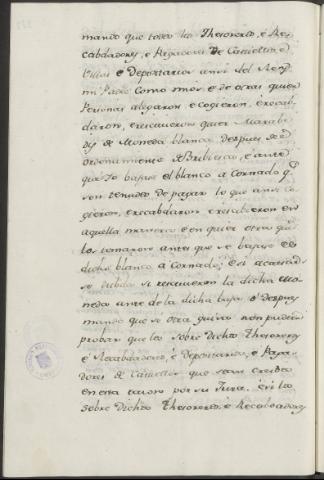 mando que todos los Thesoreros, é Re-
cabdadores, e Pagadores de Castiellos, é
Villas e Depositarios ansi del Rey
mi Padre como mios e de otras quier
Personas allegaron, e cogieron, e recab-
daron, e rescivieron quier Marabe-
dis de Moneda blanca despues de el
ordenamiento de Bribiesca, é ante
que Yo bajase el blanco a Cornado q.e
son tenudos de pagar lo que ansi co-
gieron, e recabdaron e resciberon en
aquella manera e en quier otras que
lo tomaron antes que se bajase el
dicho blanco a Cornado; E si acaesciere
se dubda si rescivieron la dicha Mo-
neda ante de la dicha baja o despues
mando que se otra guisa non pudieren
probar que los sobre dichos Thesoreros
é Recabdadores, é Depositarios, é Paga-
dores de Castiellos que sean creidos
en esta razon por su Jura. é si los
sobre dichos Thesoreros, é Recabdadores